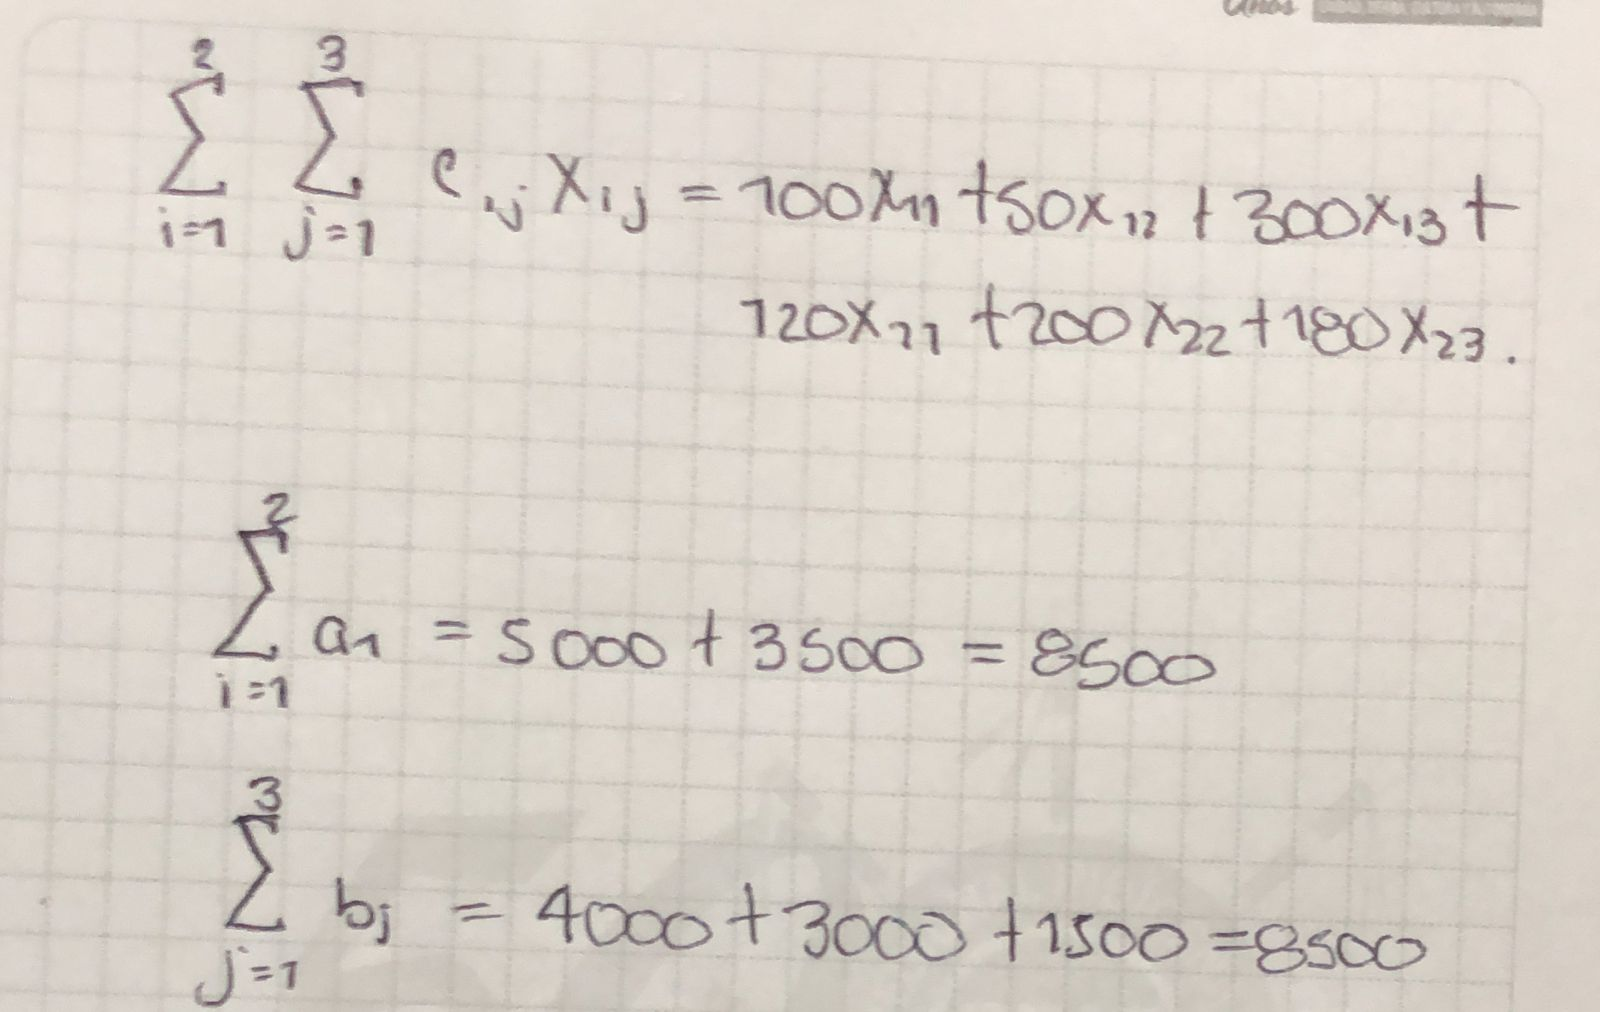 Unos
2 3
∑ ∑ c ij x ij = 100x11 + 50x12 + 300x13 +
i=1 j=1
120x21 + 200x22 + 180x23.
2
∑ a1 = 5000 + 3500 = 8500
i=1
3
∑ bj = 4000 + 3000 + 1500 = 8500
j=1